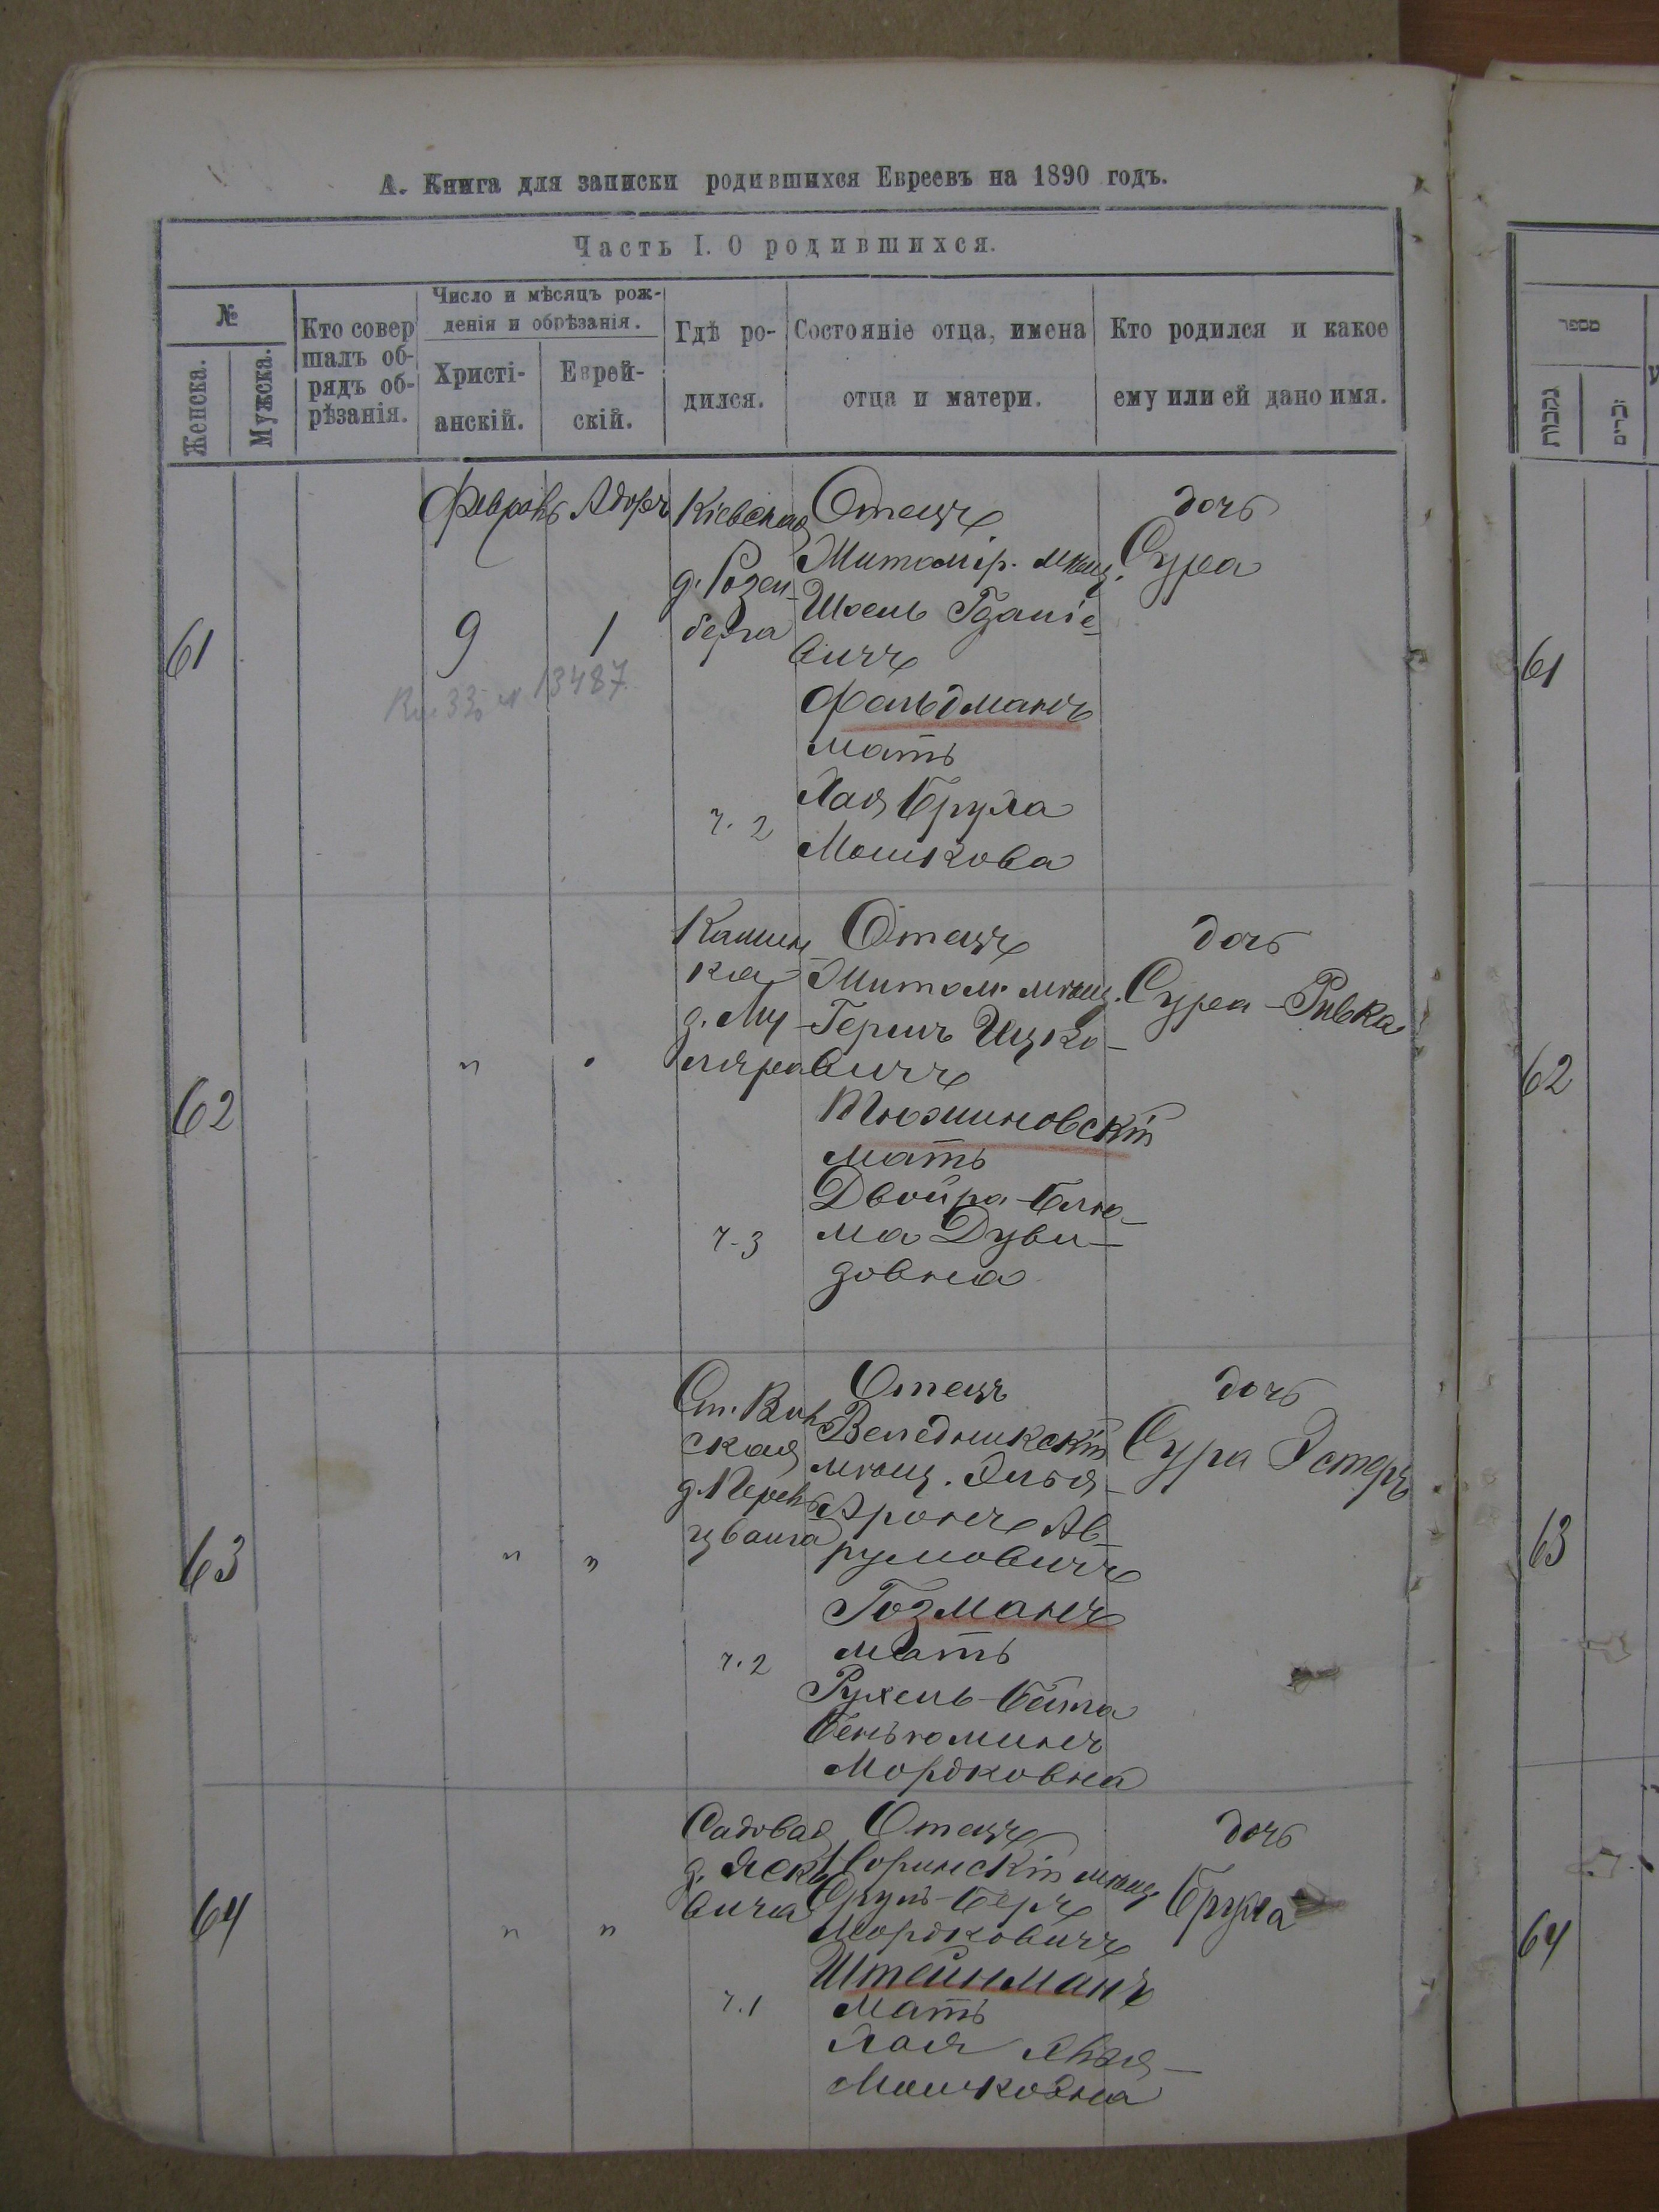 А. Книга для записки родившихся Евреевъ на 1890 годъ.
Часть I. О родившихся.
№
Женска.
Мужска.
Кто совер
шалъ об-
рядъ об-
рѣзанія.
Число и мѣсяцъ рож-
денія и обрѣзанія.
Христі-
анскій.
Еврей-
скій.
Гдѣ ро-
дился.
Состояніе отца, имена
отца и матери.
Кто родился и какое
ему или ей дано имя.
61
Февраль
9
Адоръ
1
13487
Кіевская
д. Розен-
берга
ч. 2
Отецъ
Житомір. мѣщ.
Шоель Гдаліе-
вичъ
Фельдманъ
мать
Хая Бруха
Мошкова
дочь
Сура
62
"
"
ч-3
Отецъ
Житом. мѣщ.
Гершъ Ицко-
вичъ
мать
Двойра-Блю-
ма Дуви-
довна
дочь
Сура-Ривка
63
"
"
ская
ч. 2
Отецъ
Веледникскій
мѣщ. Элья-
Аронъ Ав-
румовичъ
Гозманъ
мать
Рухель-Бейла
Беньюминъ
Мордковна
дочь
Сура Эстеръ
64
"
"
Садовая
вича
ч. 1
Отецъ
Норинскій мѣщ.
Сруль-Беръ
Мордковичъ
Штейнманъ
мать
Хая
Мошковна
дочь
Бруха
מספר
נקבות
זכרים
61
62
63
64